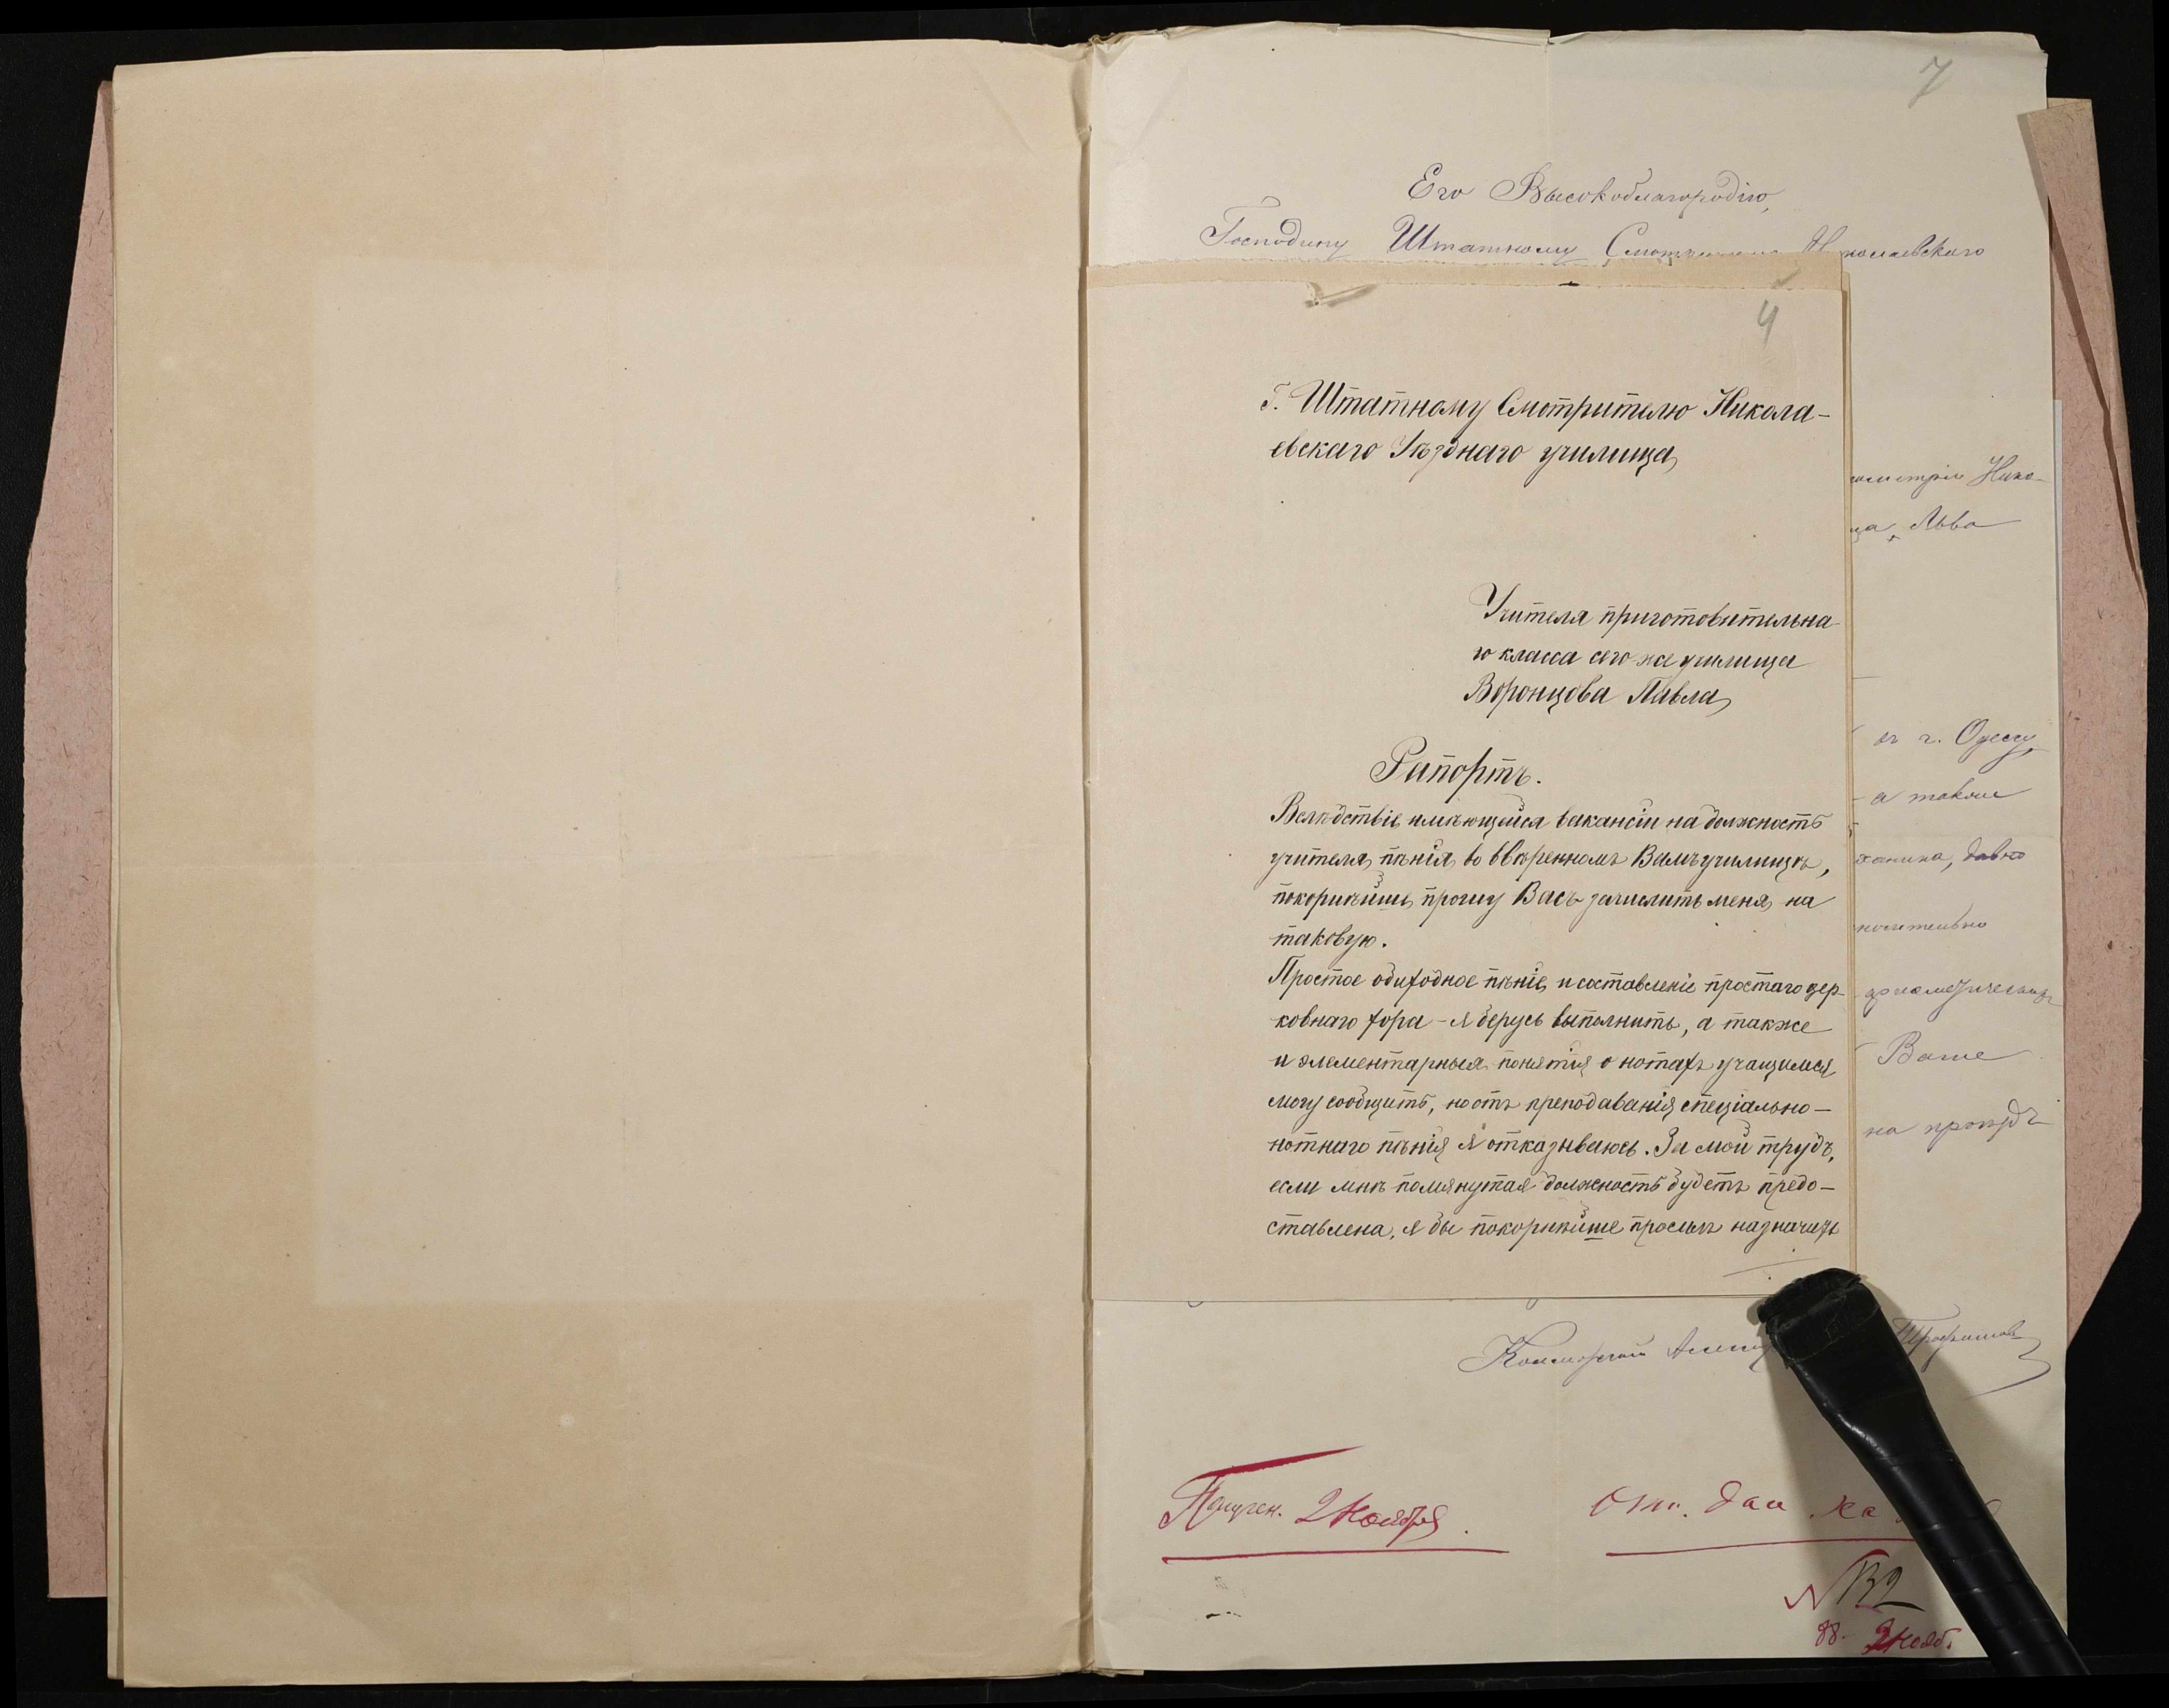 7
Его Высокоблагородію,
Господину Штатному Смотрителю Николаевскаго
4
Г. Штатному Смотрителю Никола-
евскаго Уѣзднаго училища
Учителя приготовительна-
го класса сего же училища
Воронцова Павла
Рапортъ.
Вслѣдствіе имѣющейся вакансіи на должность
учителя пѣнія во ввѣренномъ Вамъ училищѣ,
покорнѣйше прошу Васъ зачислить меня на
таковую.
Простое обиходное пѣніе и составленіе простаго цер-
ковнаго хора - я берусь выполнить, а также
и элементарныя понятія о нотахъ учащимся
могу сообщить, но отъ преподаванія спеціально-
нотнаго пѣнія я отказываюсь. За мой трудъ,
если мнѣ помянутая должность будетъ предо-
ставлена, я бы покорнѣйше просилъ назначить
Нико-
ца, Льва
въ г. Одессу,
а также
давно
Ваше
на проѣздъ
Получен. 2 Ноября.
От. дан на
N 132
88. 2 Нояб.